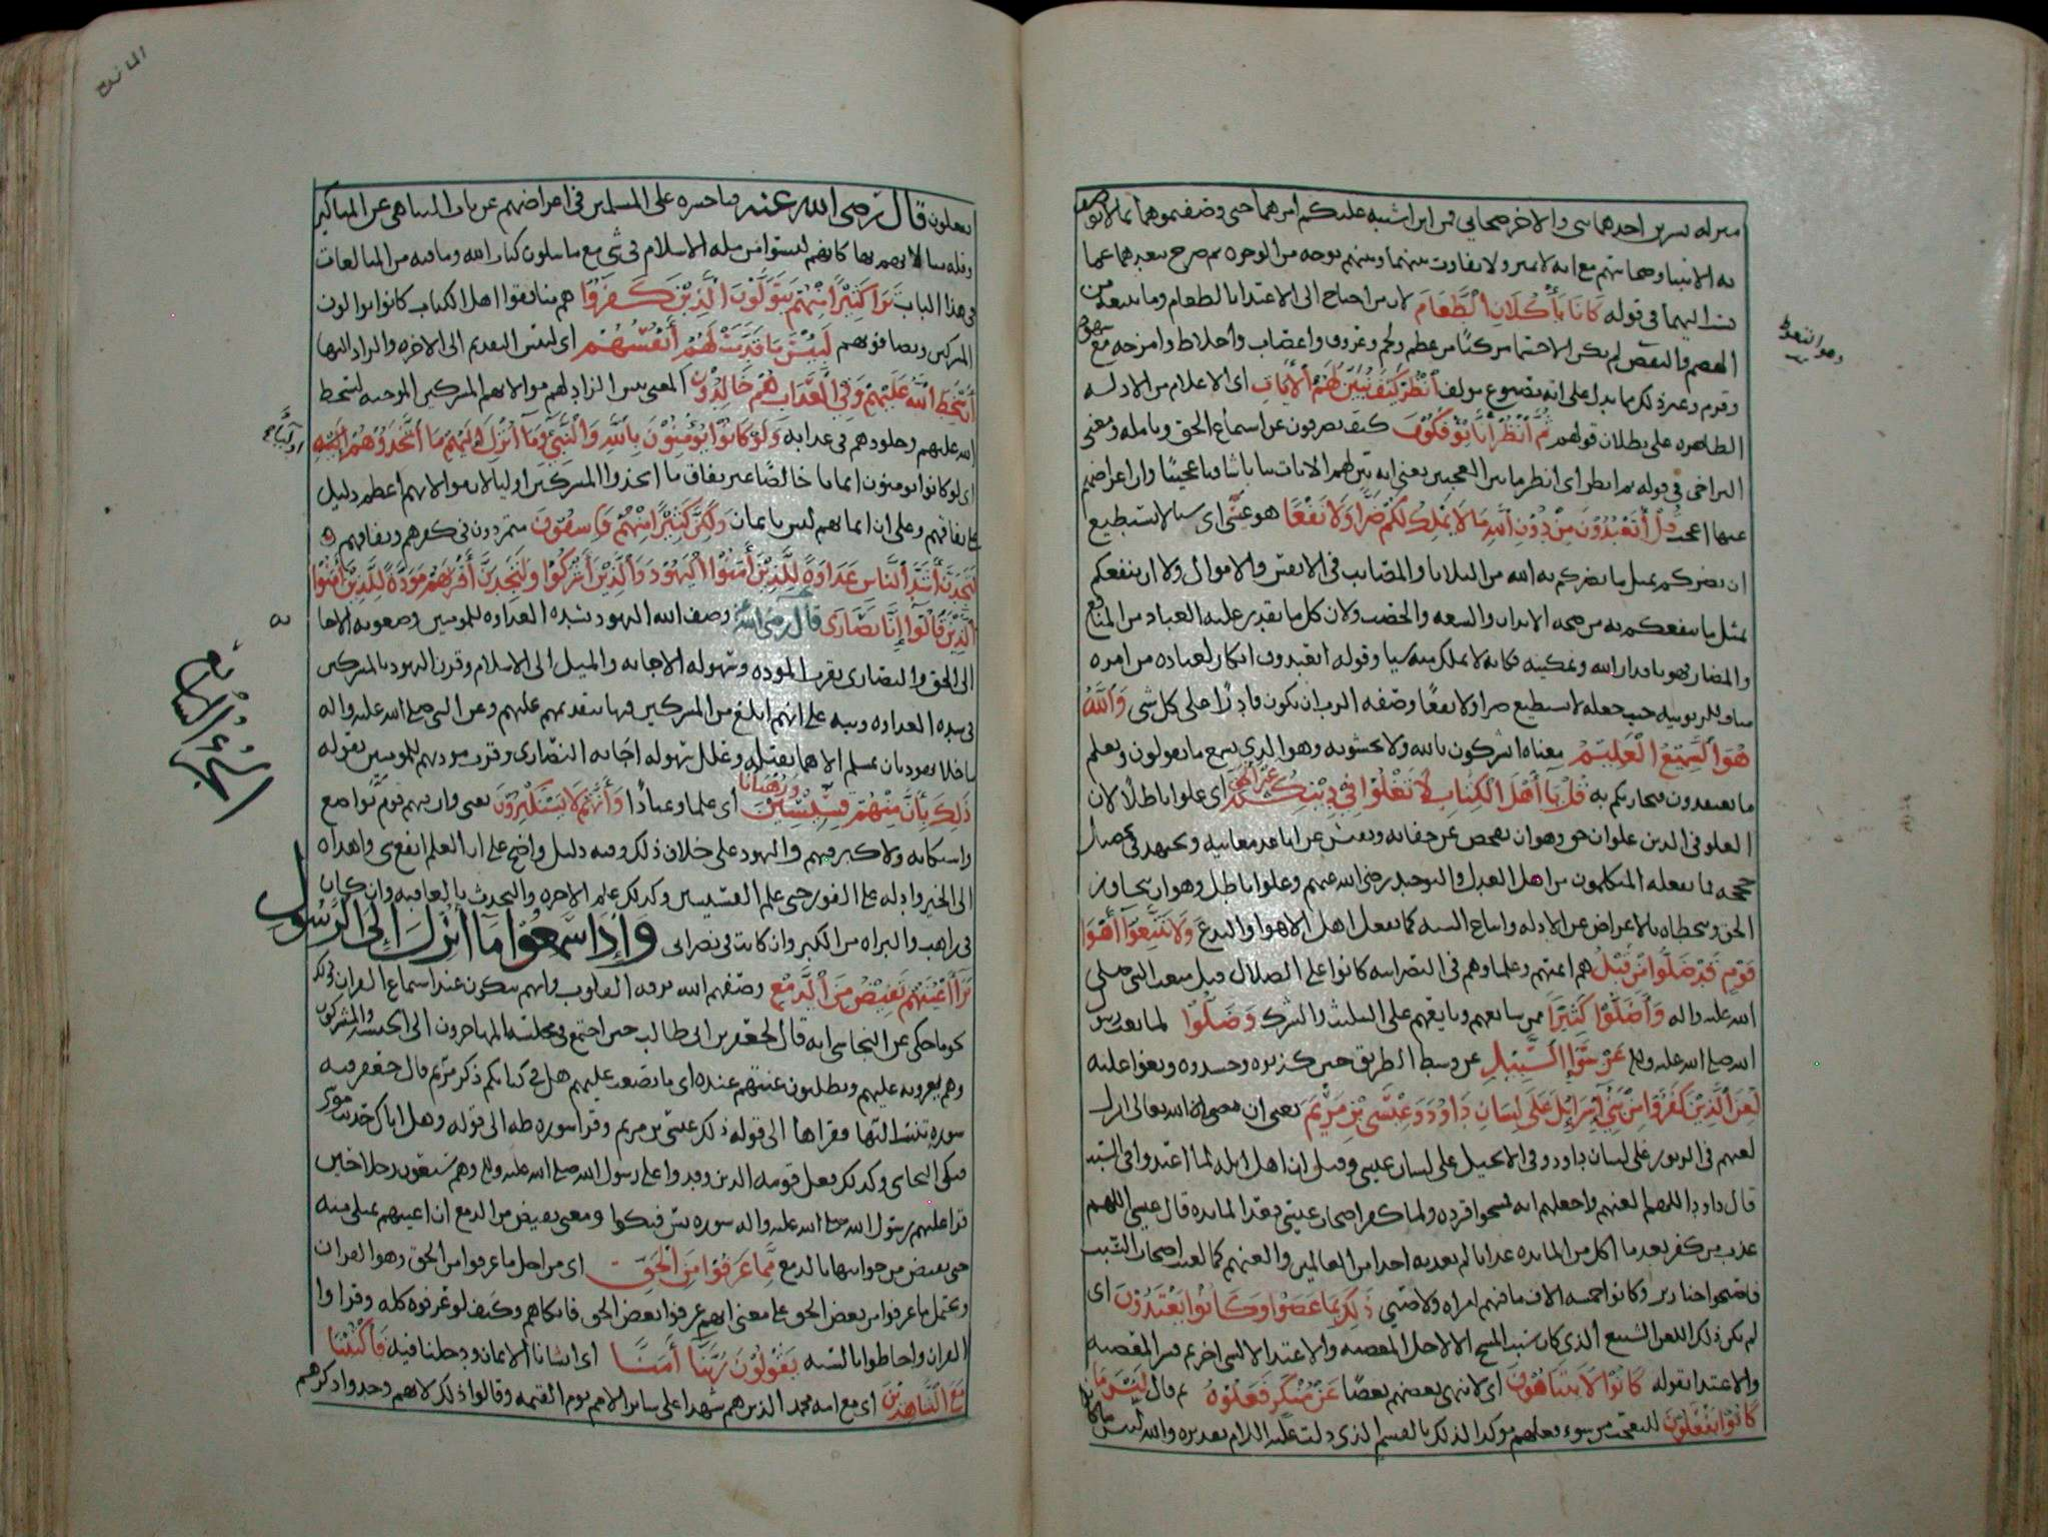 منزله بشرين احدهما نبي والاخر صحابي فمن اين اشتبه عليكم امرهما حتى وصفتموهما بما لا يوصف
به الانبيا وصحابتهم مع انه لا تميز ولا تفاوت بينهما وبينهم بوجه من الوجوه ثم صرح ببعدهما عما
نسب اليهما في قوله كَانَا يَأْكُلَانِ الطَّعَامَ لان من احتاج الى الاغتدا بالطعام وما يتبعه من
الهضم والنفض لم يكن الا جسما مركبا من عظم ولحم وعروق واعصاب واخلاط وامزجه مع
وقرم وغير ذلك مما يدل على انه مصنوع مولف انْظُرْ كَيْفَ نُبَيِّنُ لَهُمُ الْآيَاتِ اى الاعلام من الادله
الظاهره على بطلان قولهم ثُمَّ انْظُرْ أَنَّى يُؤْفَكُونَ كيف يصرفون عن استماع الحق وتامله ومعنى
التراخي في قوله ثم انظر اى انظر ما بين العجبين يعنى انه بين لهم الايات بيانا شافيا عجيبا وان اعراضهم
عنها اعجب قُلْ أَتَعْبُدُونَ مِنْ دُونِ اللَّهِ مَا لَا يَمْلِكُ لَكُمْ ضَرًّا وَلَا نَفْعًا هو عيسى اى شيا لا يستطيع
ان يضركم بمثل ما يضركم به الله من البلايا والمصايب في الانفس والاموال ولا ان ينفعكم
بمثل ما ينفعكم به من صحه الابدان والسعه والخصب ولان كل ما يقدر عليه العباد من المنافع
والمضار فهو باقدار الله وتمكينه فكانه لا يملك منه شيا وقوله اتعبدون انكار لعباده من امره
مناف للربوبيه حيث جعله لا يستطيع ضرا ولا نفعا وصفه الرب ان يكون قادرا على كل شي وَاللَّهُ
هُوَ السَّمِيعُ الْعَلِيمُ معناه اتشركون بالله ولا تخشونه وهو الذي يسمع ما تقولون ويعلم
ما تعتقدون فيجازيكم به قُلْ يَا أَهْلَ الْكِتَابِ لَا تَغْلُوا فِي دِينِكُمْ غَيْرَ الْحَقِّ اى غلوا باطلا لان
الغلو في الدين غلوان حق وهو ان يفحص عن حقايقه ويفتش عن اباعد معانيه ويجتهد في تحصيل
حججه كما يفعله المتكلمون من اهل العدل والتوحيد رضى الله عنهم وغلو باطل وهو ان يتجاوز
الحق ويتخطاه بالاعراض عن الادله واتباع الشبه كما يفعل اهل الاهوا والبدع وَلَا تَتَّبِعُوا أَهْوَاءَ
قَوْمٍ قَدْ ضَلُّوا مِنْ قَبْلُ هم ايمتهم وعلماوهم في النصرانيه كانوا على الضلال قبل مبعث النبي صلى
الله عليه واله وَأَضَلُّوا كَثِيرًا ممن شايعهم وتابعهم على التثليث والشرك وَضَلُّوا لما بعث رسول
الله صلى الله عليه وسلم عَنْ سَوَاءِ السَّبِيلِ عن وسط الطريق حين كذبوه وحسدوه وبغوا عليه
لُعِنَ الَّذِينَ كَفَرُوا مِنْ بَنِي إِسْرَائِيلَ عَلَى لِسَانِ دَاوُدَ وَعِيسَى ابْنِ مَرْيَمَ يعنى ان الله تعالى انزل
لعنهم في الزبور على لسان داود وفي الانجيل على لسان عيسى وقيل ان اهل ايله لما اعتدوا في السبت
قال داود اللهم العنهم واجعلهم ايه فمسخوا قرده ولما كفر اصحاب عيسى بعد المايده قال عيسى اللهم
عذب من كفر بعد ما اكل من المايده عذابا لم تعذبه احدا من العالمين والعنهم كما لعنت اصحاب السبت
فاصبحوا خنازير وكانوا خمسه الاف ما فيهم امراه ولا صبي ذَلِكَ بِمَا عَصَوْا وَكَانُوا يَعْتَدُونَ اى
لم يكن ذلك اللعن الشنيع الذي كان سبب المسخ الا لاجل المعصيه والاعتدا لا لشي اخر ثم فسر المعصيه
والاعتدا بقوله كَانُوا لَا يَتَنَاهَوْنَ اى لا ينهى بعضهم بعضا عَنْ مُنْكَرٍ فَعَلُوهُ ثم قال لَبِئْسَ مَا
كَانُوا يَفْعَلُونَ للتعجب من سوء فعلهم موكدا لذلك بالقسم الذي دلت عليه اللام تقديره والله لبئس ما كانوا
المائدة
يفعلون قال رضى الله عنه فيا حسره على المسلمين في اعراضهم عن باب التناهي عن المناكير
وقله مبالاتهم بها كانهم ليسوا من مله الاسلام في شي مع ما يتلون كتاب الله وما فيه من المبالغات
في هذا الباب تَرَى كَثِيرًا مِنْهُمْ يَتَوَلَّوْنَ الَّذِينَ كَفَرُوا هم منافقوا اهل الكتاب كانوا يوالون
المشركين ويصافونهم لَبِئْسَ مَا قَدَّمَتْ لَهُمْ أَنْفُسُهُمْ اى لبئس التقديم الى الاخره والزاد اليها
أَنْ سَخِطَ اللَّهُ عَلَيْهِمْ وَفِي الْعَذَابِ هُمْ خَالِدُونَ المعنى بئس الزاد لهم موالاتهم المشركين الموجبه لسخط
الله عليهم وخلودهم في عذابه وَلَوْ كَانُوا يُؤْمِنُونَ بِاللَّهِ وَالنَّبِيِّ وَمَا أُنْزِلَ إِلَيْهِ مَا اتَّخَذُوهُمْ أَوْلِيَاءَ
اى لو كانوا يومنون ايمانا خالصا غير نفاق ما اتخذوا المشركين اوليا لان موالاتهم اعظم دليل
على نفاقهم وعلى ان ايمانهم ليس بايمان وَلَكِنَّ كَثِيرًا مِنْهُمْ فَاسِقُونَ متمردون في كفرهم ونفاقهم
لَتَجِدَنَّ أَشَدَّ النَّاسِ عَدَاوَةً لِلَّذِينَ آمَنُوا الْيَهُودَ وَالَّذِينَ أَشْرَكُوا وَلَتَجِدَنَّ أَقْرَبَهُمْ مَوَدَّةً لِلَّذِينَ آمَنُوا
الَّذِينَ قَالُوا إِنَّا نَصَارَى قال رضى الله عنه وصف الله اليهود بشده العداوه للمومنين وصعوبه الاجابه
الى الحق والنصارى بقرب الموده وسهوله الاجابه والميل الى الاسلام وقرن اليهود بالمشركين
في شده العداوه ونبه على انهم ابلغ من المشركين فيها بتقديمهم عليهم وعن النبي صلى الله عليه واله
ما خلا يهوديان بمسلم الا هما بقتله وعلل سهوله اجابه النصارى وقرب مودتهم للمومنين بقوله
ذَلِكَ بِأَنَّ مِنْهُمْ قِسِّيسِينَ وَرُهْبَانًا اى علما وعبادا وَأَنَّهُمْ لَا يَسْتَكْبِرُونَ يعنى وان فيهم قوم تواضع
واستكانه ولا كبر فيهم واليهود على خلاف ذلك وفيه دليل واضح على ان العلم انفع شي واهداه
الى الخير وادله على الفوز حتى علم القسيسين وكذلك علم الاخره والتحدث بالعاقبه وان كان
في راهب والبراه من الكبر وان كانت في نصراني وَإِذَا سَمِعُوا مَا أُنْزِلَ إِلَى الرَّسُولِ
تَرَى أَعْيُنَهُمْ تَفِيضُ مِنَ الدَّمْعِ وصفهم الله برقه القلوب وانهم يبكون عند استماع القران وذلك
نحو ما حكى عن النجاشي انه قال لجعفر بن ابى طالب حين اجتمع في مجلسه المهاجرون الى الحبشه والمشركون
وهم يغرونه عليهم ويطلبون عنتهم عنده اى ما يصعب عليهم هل في كتابكم ذكر مريم قال جعفر فيه
سوره تنسب اليها فقراها الى قوله ذلك عيسى بن مريم وقرا سوره طه الى قوله وهل اتاك حديث موسى
فبكى النجاشي وكذلك فعل قومه الذين وفدوا على رسول الله صلى الله عليه وسلم وهم سبعون رجلا حين
قرا عليهم رسول الله صلى الله عليه واله سوره يس فبكوا ومعنى تفيض من الدمع ان اعينهم تمتلى منه
حتى تفيض من جوانبها بالدمع مِمَّا عَرَفُوا مِنَ الْحَقِّ اى من اجل ما عرفوا من الحق وهو القران
ويحتمل ما عرفوا من بعض الحق على معنى انهم عرفوا بعض الحق فابكاهم وكيف لو عرفوه كله وقراوا
القران واحاطوا بالسنه يَقُولُونَ رَبَّنَا آمَنَّا اى انشانا الايمان ودخلنا فيه فَاكْتُبْنَا
مَعَ الشَّاهِدِينَ اى مع امه محمد الذين هم شهدا على ساير الامم يوم القيمه وقالوا ذلك لانهم وجدوا ذكرهم
الجزء السابع